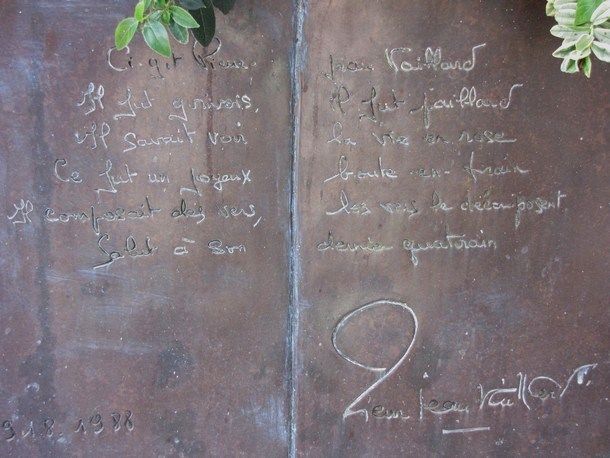 Ci gît Pierre Jean Vaillard
Il fut grivois, Il fut paillard
Il savait voir la vie en rose
Ce fut un joyeux boute-en-train
Il composait des vers, les vers le décomposent
Salut à son dernier quatrain
Pierre Jean Vaillard
31.8.1988